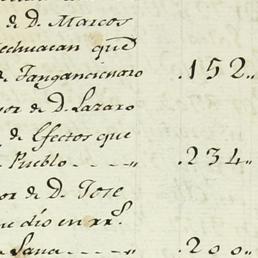 de D. Marcos
echuacan que
de Tangancicuaro .152..
or de D. Lazaro
de Efectos que
Pueblo - - - .234..
or de D. Jose
ne dio en rrs.
Lana - - - .200..